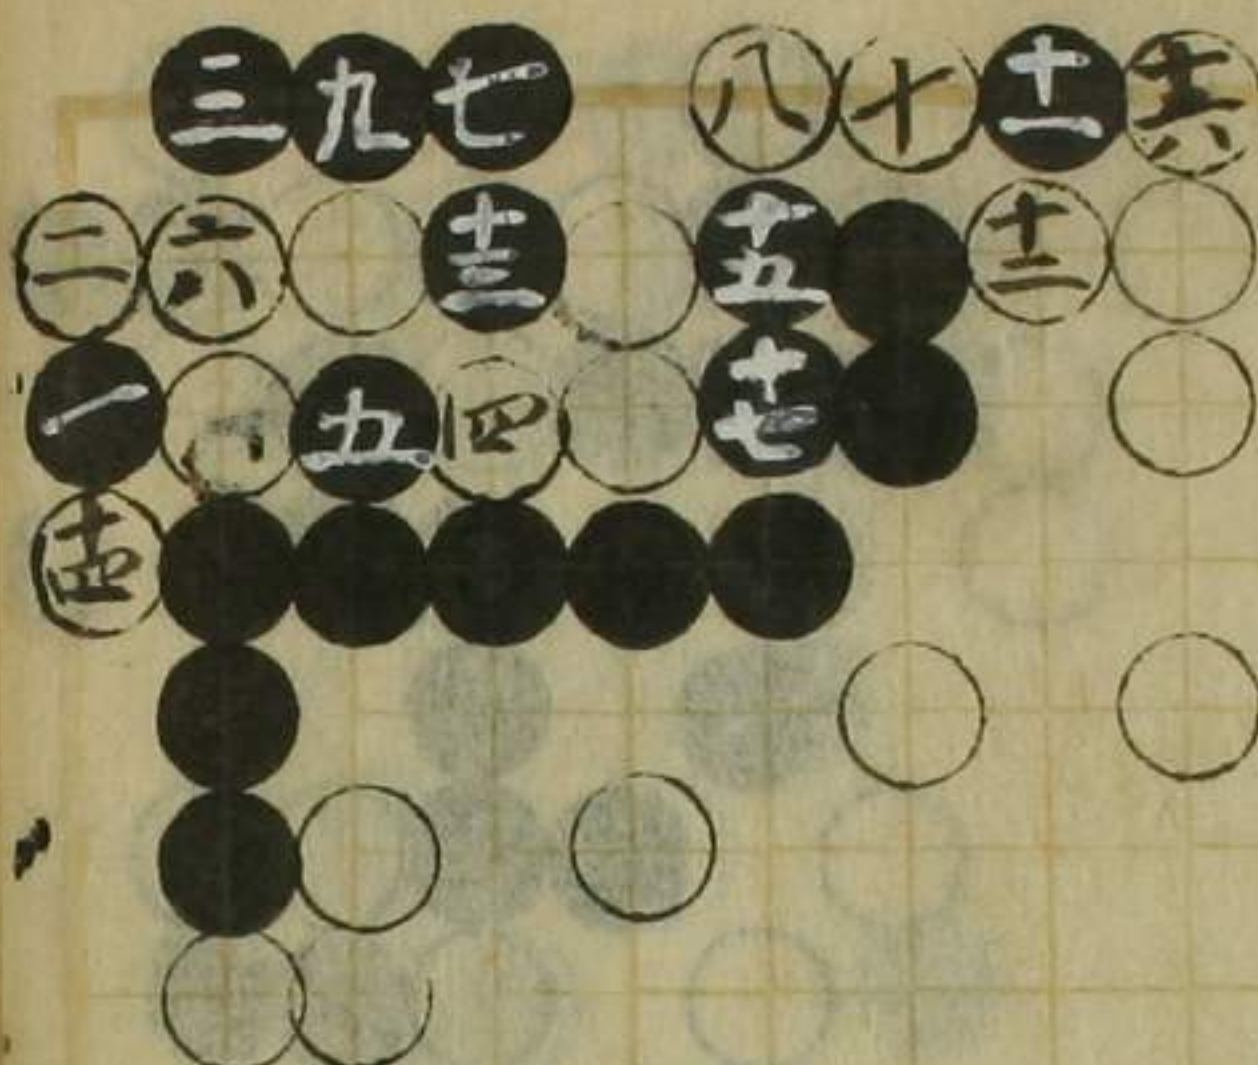 三 九 七 八 十 十一 十六
二 六 十三 十五 十二
一 五 四 十七
十四